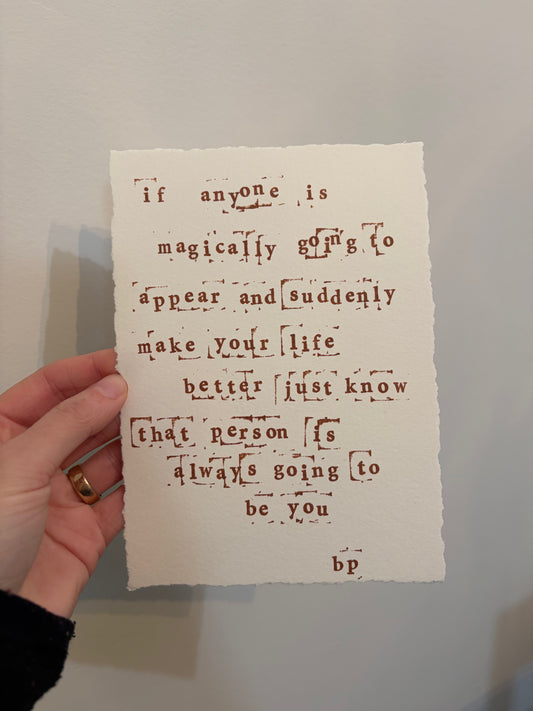 if anyone is
magically going to
appear and suddenly
make your life
better just know
that person is
always going to
be you
bp